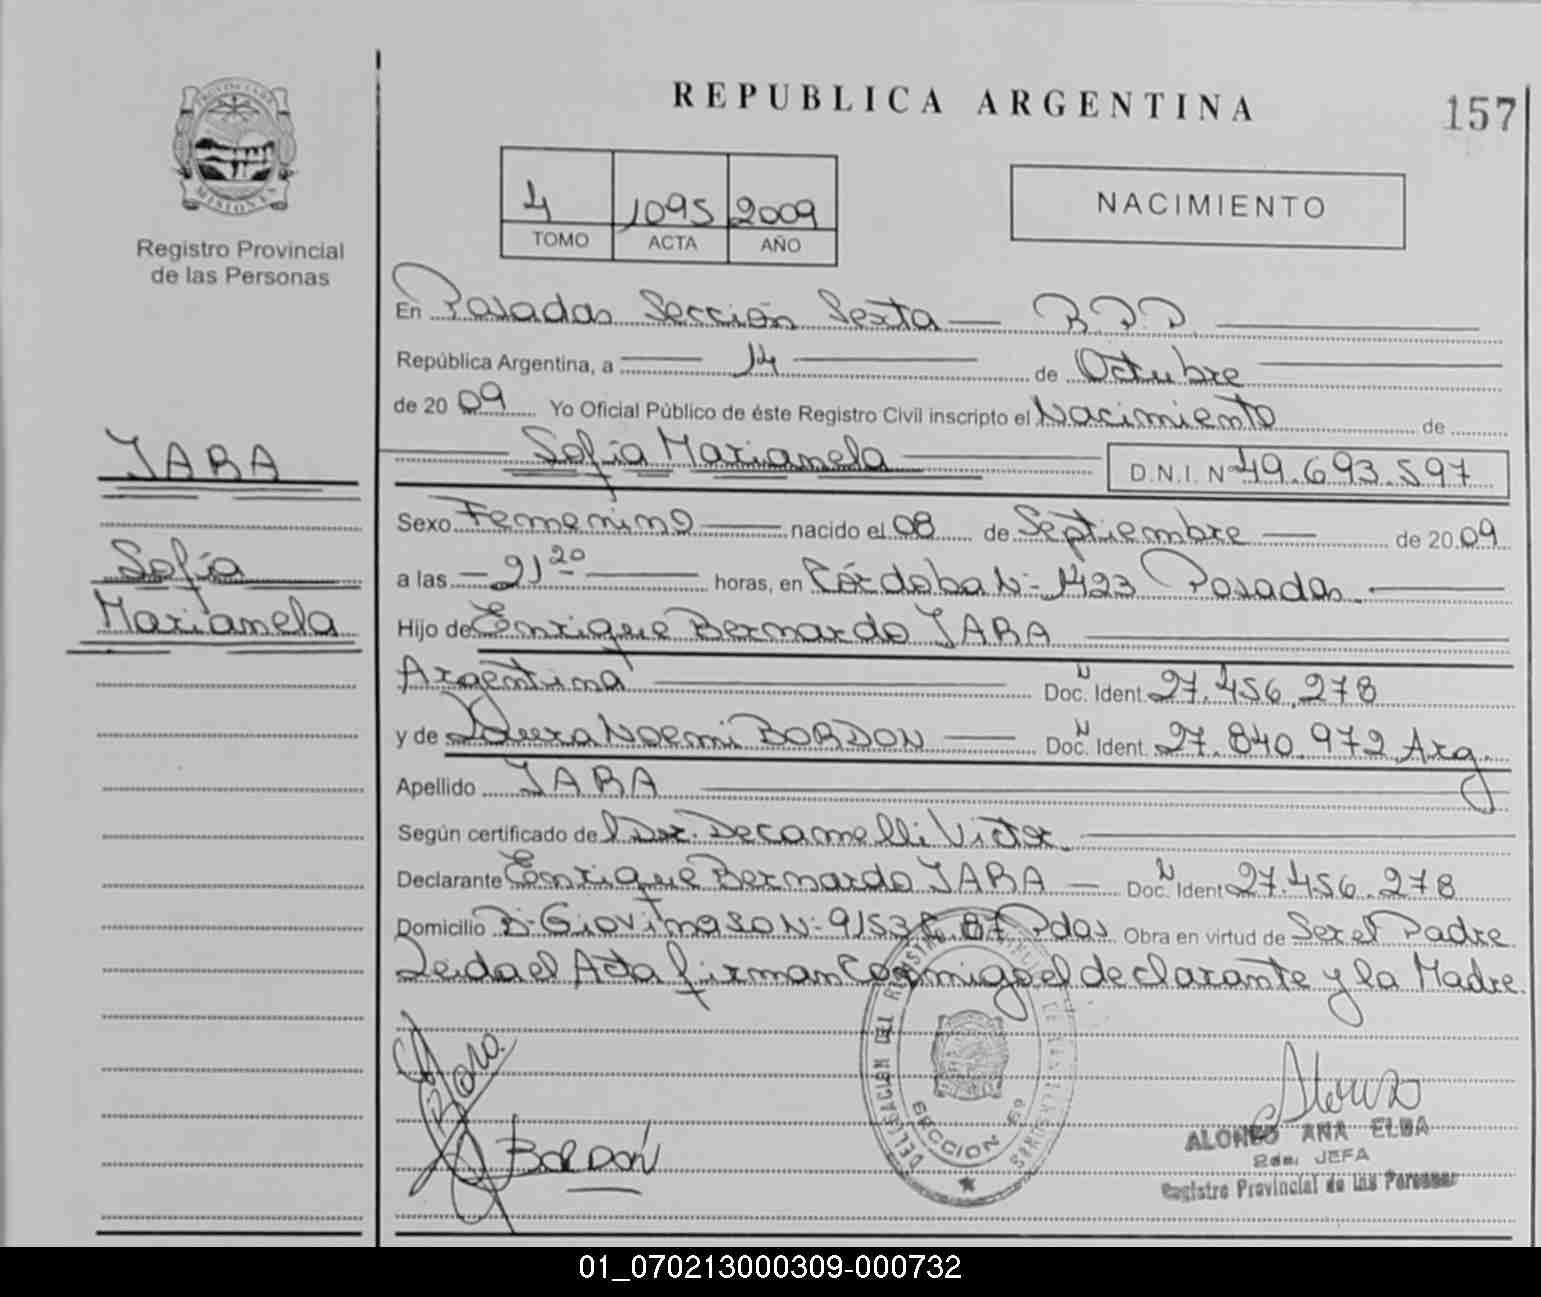 REPUBLICA ARGENTINA
157
PROVINCIA DE
MISIONES
Registro Provincial
de las Personas
4 1095 2009
TOMO ACTA AÑO
NACIMIENTO
En Posadas Sección Sexta — B.P.P.
República Argentina, a 14 de Octubre
de 2009 Yo Oficial Público de éste Registro Civil inscripto el Nacimiento de
Sofía Marianela D.N.I. Nº 49.693.597
JARA
Sofía
Marianela
Sexo Femenino nacido el 08 de Septiembre de 2009
a las 21 20 horas, en Córdoba N- 1423 Posadas.
Hijo de Enrique Bernardo JARA
Argentina Doc. Ident. N 27.456.278
y de Laura Noemi BORDON Doc. Ident. N 27.840.972 Arg.
Apellido JARA
Según certificado de Dr. Decamelli Victor.
Declarante Enrique Bernardo JARA — Doc. Ident N 27.456.278
Domicilio Bº Giovinaso N- 9153 C. 87 Pdas Obra en virtud de Ser el Padre
Leida el Acta firman Conmigo el declarante y la Madre.
Jara.
BORDón
DELEGACION DEL REGISTRO
SECCION 6º
Alonso
ALONSO ANA ELBA
2da. JEFA
Registro Provincial de las Personas
01_070213000309-000732